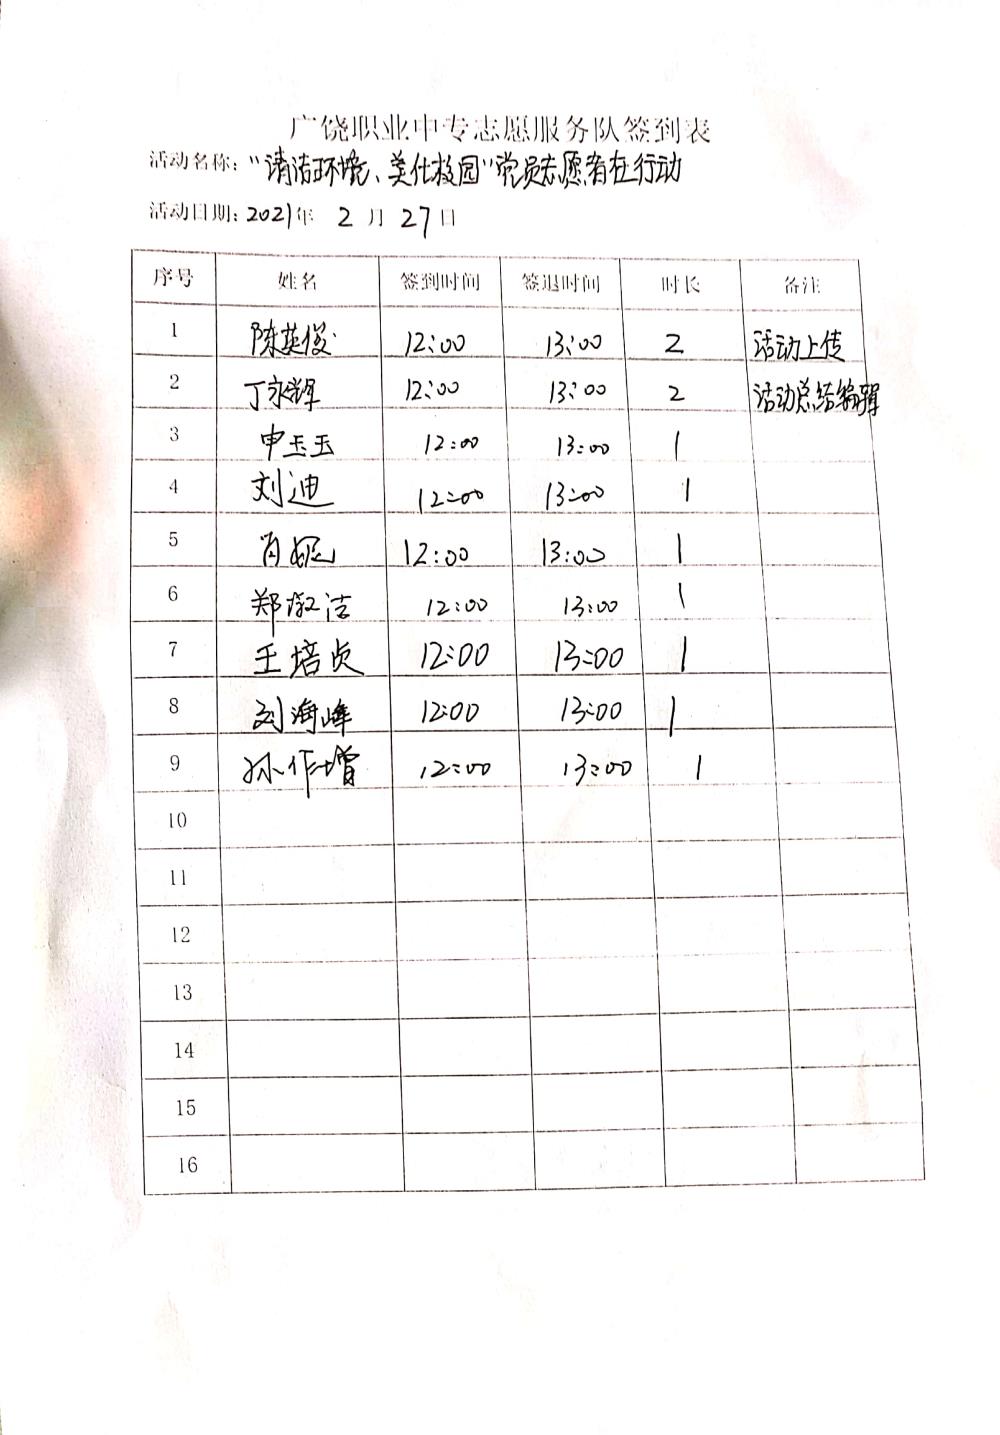 广饶职业中专志愿服务队签到表
活动名称：“清洁环境、美化校园”党员志愿者在行动
活动日期：2021年 2 月 27 日
序号 姓名 签到时间 签退时间 时长 备注
1 陈英俊 12:00 13:00 2 活动上传
2 丁永辉 12:00 13:00 2 活动总结编辑
3 申玉玉 12:00 13:00 1
4 刘迪 12:00 13:00 1
5 肖妮 12:00 13:00 1
6 郑淑洁 12:00 13:00 1
7 王培贞 12:00 13:00 1
8 刘海峰 12:00 13:00 1
9 孙作增 12:00 13:00 1
10
11
12
13
14
15
16